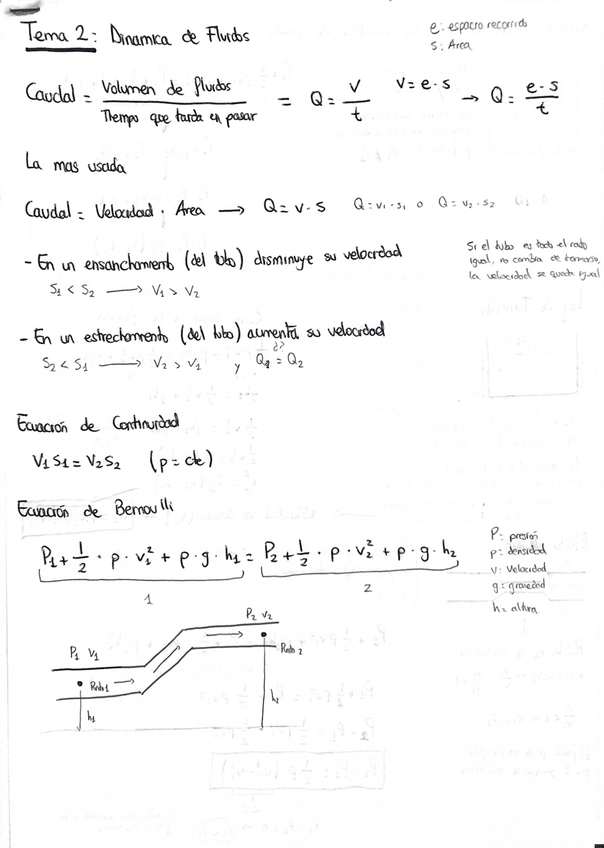 Tema 2: Dinamica de Fluidos
e: espacio recorrido
s: Area
Caudal = Volumen de fluidos / Tiempo que tarda en pasar = Q = V/t V = e·s → Q = e·s/t
La mas usada
Caudal = Velocidad · Area → Q = v·s Q = v₁·s₁ o Q = v₂·s₂
- En un ensanchamiento (del tubo) disminuye su velocidad
S₁ < S₂ → V₁ > V₂
Si el tubo es todo el rato
igual, no cambia de tamaño,
la velocidad se queda igual
- En un estrechamiento (del tubo) aumenta su velocidad
S₂ < S₁ → V₂ > V₁ y Q₁ = Q₂
¿?
Ecuación de Continuidad
V₁S₁ = V₂S₂ (ρ = cte)
Ecuación de Bernoulli
P₁ + 1/2 · ρ · v₁² + ρ · g · h₁ = P₂ + 1/2 · ρ · v₂² + ρ · g · h₂
1 2
P: presión
ρ: densidad
v: velocidad
g: gravedad
h = altura
P₂ V₂
P₁ V₁
Punto 2
Punto 1
h₁
h₂